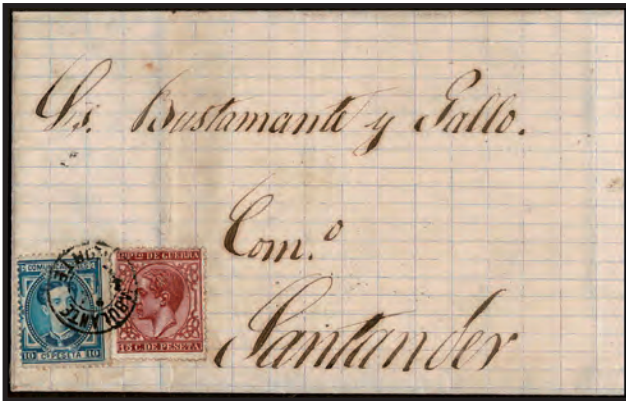 Srs. Bustamante y Gallo.
Com.º
Santander
COMUNICACIONES
10 Cs PESETA 10
AMBULANTE
NORTE
IMPTO DE GUERRA
15 C. DE PESETA